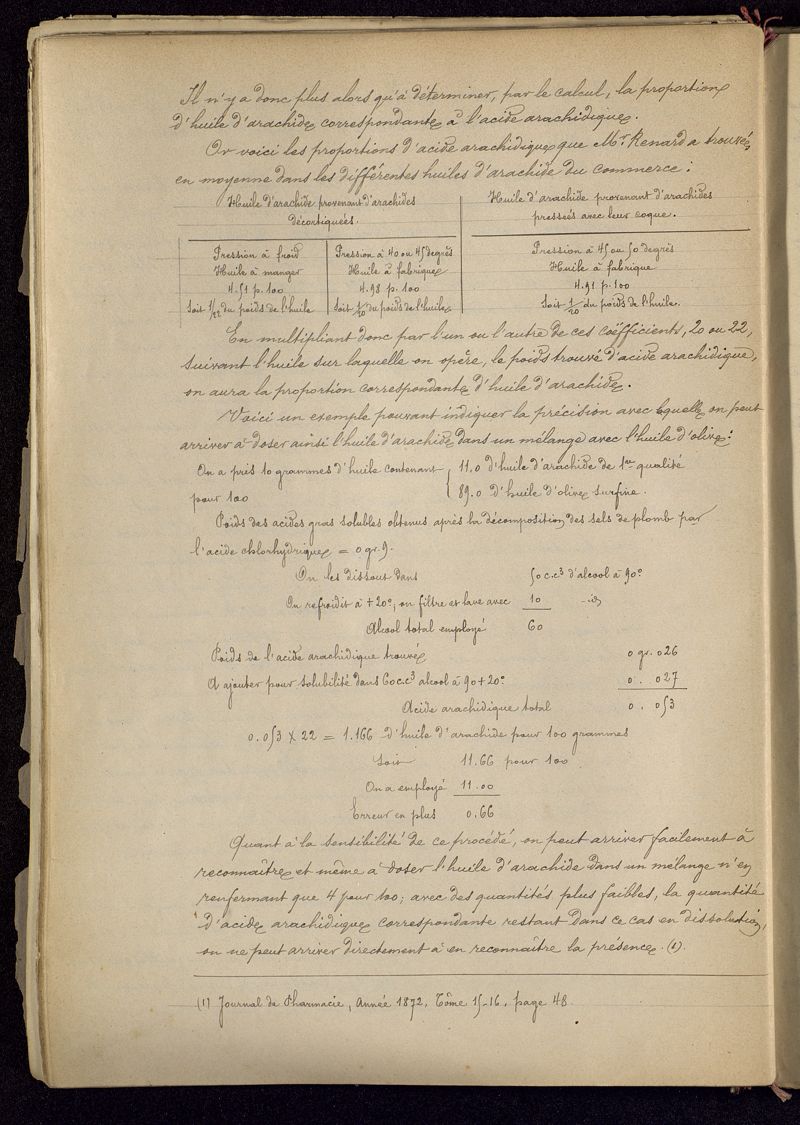 Il n'y a donc plus alors qu'à déterminer, par le calcul, la proportion
d'huile d'arachide correspondante à l'acide arachidique.
Or voici les proportions d'acide arachidique que Mr Renard a trouvées,
en moyenne dans les différentes huiles d'arachide du commerce :
Huile d'arachide provenant d'arachides
décortiquées.
Huile d'arachide provenant d'arachides
pressées avec leur coque.
Pression à froid
Huile à manger
4.51 p. 100
Soit 1/22 du poids de l'huile
Pression à 40 ou 45 degrés
Huile à fabrique
4.98 p. 100
Soit 1/20 du poids de l'huile
Pression à 45 ou 50 degrés
Huile à fabrique
4.91 p. 100
Soit 1/20 du poids de l'huile.
En multipliant donc par l'un ou l'autre de ces coéfficients, 20 ou 22,
suivant l'huile sur laquelle on opère, le poids trouvé d'acide arachidique,
on aura la proportion correspondante d'huile d'arachide.
Voici un exemple pouvant indiquer la précision avec laquelle on peut
arriver à doser ainsi l'huile d'arachide dans un mélange avec l'huile d'olive :
On a pris 10 grammes d'huile contenant { 11.0 d'huile d'arachide de 1re qualité
pour 100 89.0 d'huile d'olive surfine.
Poids des acides gras solubles obtenus après la décomposition des sels de plomb par
l'acide chlorhydrique = 0 gr. 9.
On les dissout dans 50 c.c3 d'alcool à 90°
On refroidit à +20°, on filtre et lave avec 10 -id
Alcool total employé 60
Poids de l'acide arachidique trouvé 0 gr. 026
A ajouter pour solubilité dans 60 c.c3 alcool à 90+20° 0. 027
Acide arachidique total 0. 053
0.053 X 22 = 1.166 d'huile d'arachide pour 100 grammes
soit 11.66 pour 100
On a employé 11.00
Erreur en plus 0.66
Quant à la sensibilité de ce procédé, on peut arriver facilement à
reconnaître et même à doser l'huile d'arachide dans un mélange n'en
renfermant que 4 pour 100 ; avec des quantités plus faibles, la quantité
d'acide arachidique correspondante restant dans ce cas en dissolution,
on ne peut arriver directement à en reconnaître la présence. (1).
(1) Journal de Pharmacie, Année 1872, Tôme 15-16, page 48.